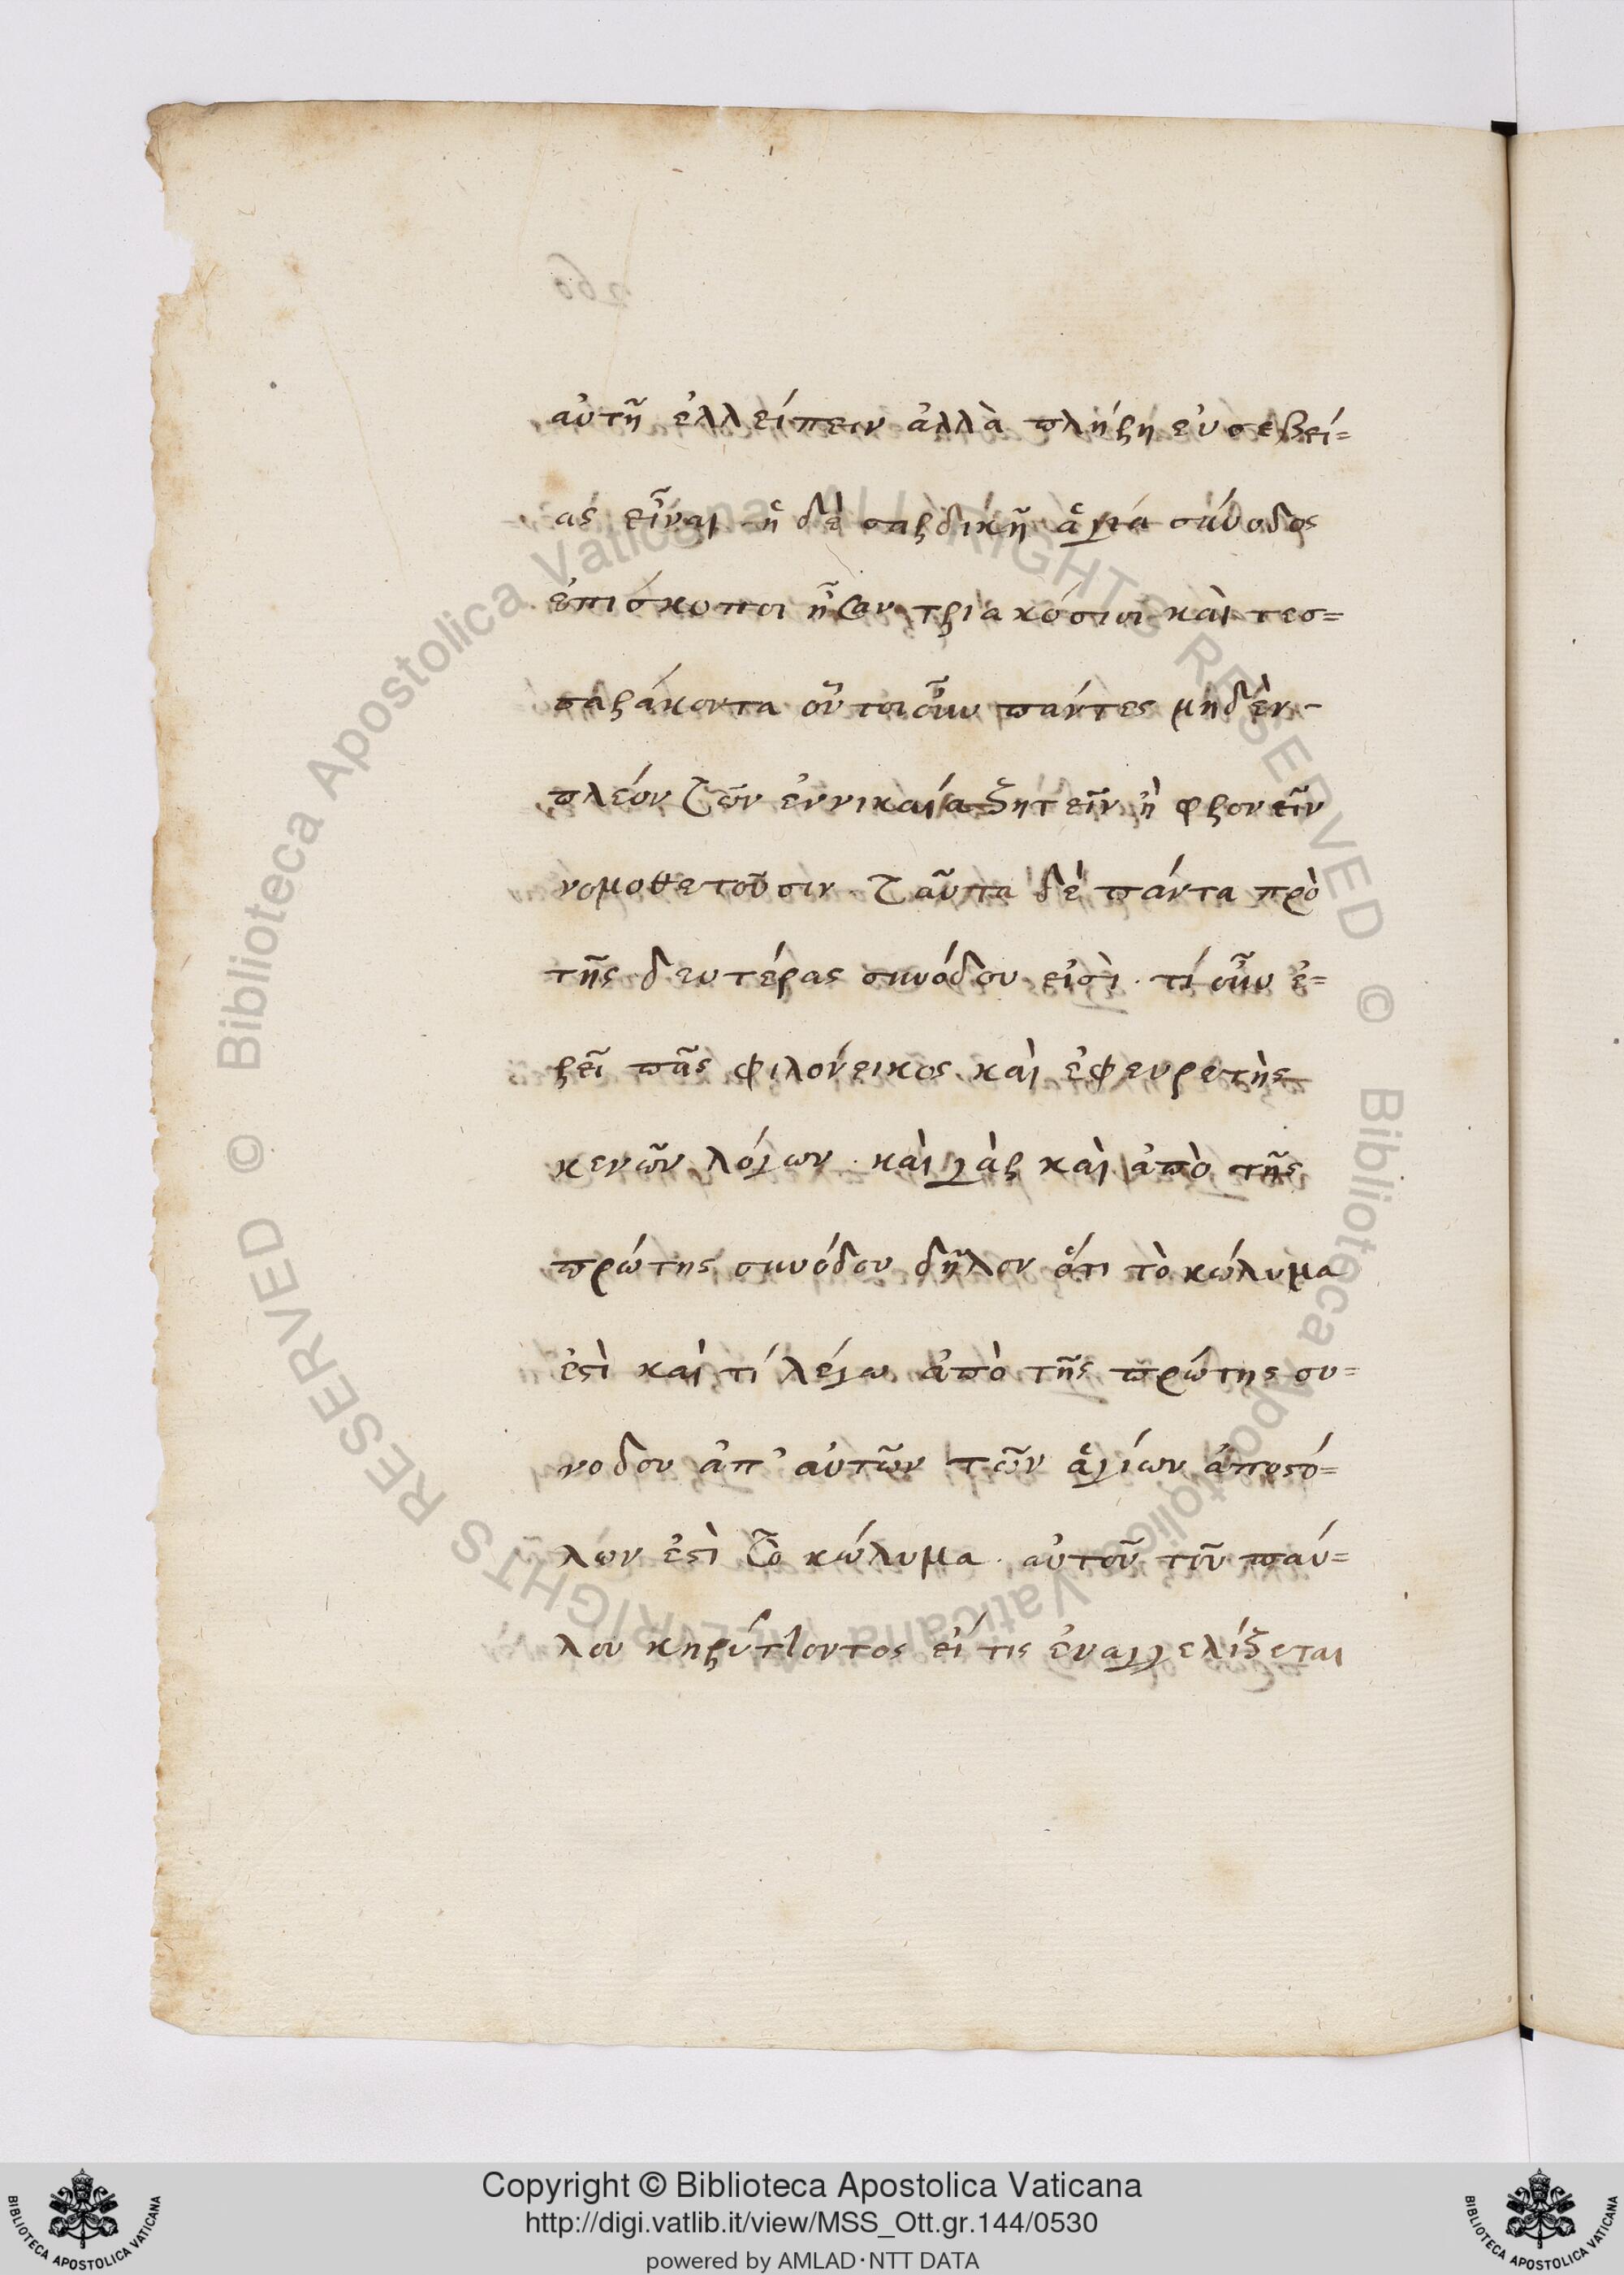 αὐτῆ ἐλλείπειν ἀλλὰ πλήρη εὐσεβεί=
ας εἶναι ἡ δὲ σαρδικῆ ἁγία σύνοδος
ἐπισκοποι ἦσαν τριακόσιοι καὶ τεσ=
σαράκοντα οὗτοι οὖν πάντες μηδὲν-
πλέον τῶν ἐν νικαία ζητεῖν ἢ φρονεῖν
νομοθετοῦσιν. ταῦτα δὲ πάντα πρὸ
τῆς δευτέρας συνόδου εἰσὶ. τί οὖν ἐ=
ρεῖ πᾶς φιλόνεικος καὶ ἐφευρετὴς
κενῶν λόγων. καὶ γὰρ καὶ ἀπὸ τῆς
πρώτης συνόδου δῆλον ὅτι τὸ κώλυμα
ἐστὶ καὶ τί λέγω ἀπὸ τῆς πρώτης συ=
νοδου ἀπ' αὐτῶν τῶν ἁγίων ἀποστό=
λων ἐστὶ τὸ κώλυμα. αὐτοῦ τοῦ παύ=
λου κηρύττοντος εἴ τις ἐυαγγελίζεται
260
Copyright © Biblioteca Apostolica Vaticana
http://digi.vatlib.it/view/MSS_Ott.gr.144/0530
powered by AMLAD·NTT DATA
BIBLIOTECA APOSTOLICA VATICANA
BIBLIOTECA APOSTOLICA VATICANA
© Biblioteca Apostolica Vaticana ALL RIGHTS RESERVED
© Biblioteca Apostolica Vaticana ALL RIGHTS RESERVED